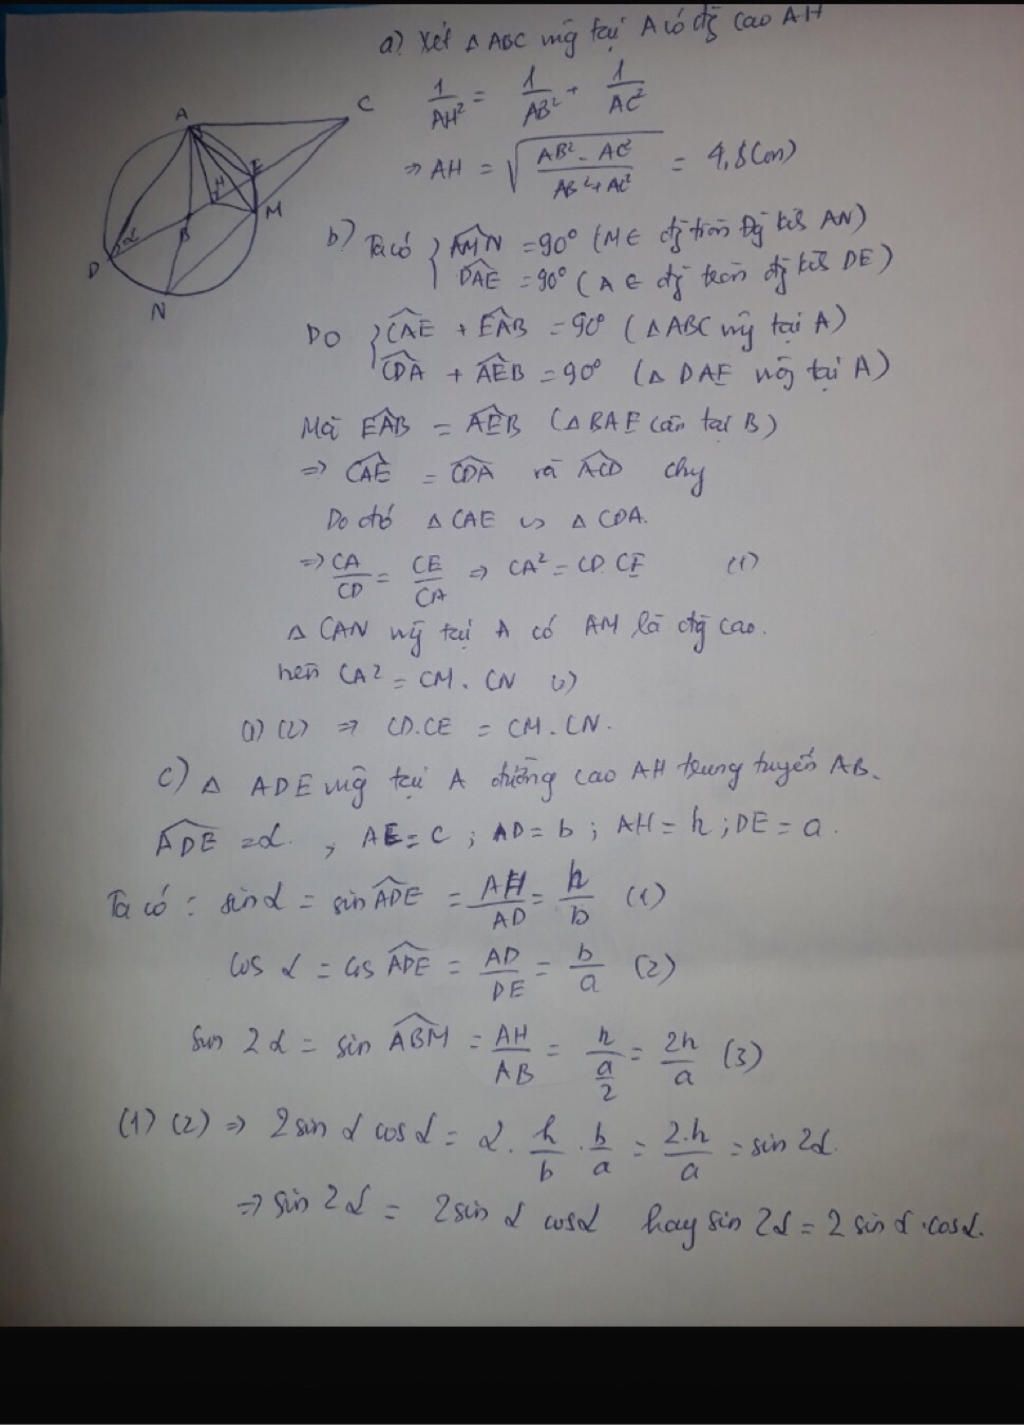 a) Xét △ ABC vug tại A có đg cao AH
1/AH² = 1/AB² + 1/AC²
⇒ AH = √(AB² - AC²/AB² + AC²) = 4,8(cm)
A
C
E
H
M
B
D
α
N
b) Ta có { AMN = 90° (M ∈ đg tròn Đg kíh AN)
DAE = 90° (A ∈ đg tròn đg kíh DE)
Do { CAE + EAB = 90° (△ ABC vug tại A)
CDA + AEB = 90° (△ DAE vuog tại A)
Mà EAB = AEB (△ BAE cân tại B)
⇒ CAE = CDA và ACD chug
Do đó △ CAE ∽ △ CDA.
⇒ CA/CD = CE/CA ⇒ CA² = CD.CE (1)
△ CAN vug tại A có AM là đg cao.
nên CA² = CM. CN (2)
(1) (2) ⇒ CD.CE = CM.CN.
c) △ ADE vug tại A đường cao AH trung tuyến AB.
ADE = α. , AE = c ; AD = b ; AH = h ; DE = a.
Ta có : sin α = sin ADE = AH/AD = h/b (1)
cos α = cos ADE = AD/DE = b/a (2)
sin 2α = sin ABM = AH/AB = h/(a/2) = 2h/a (3)
(1) (2) ⇒ 2 sin α cos α = 2. h/b . b/a = 2.h/a = sin 2α.
⇒ sin 2α = 2 sin α cos α hay sin 2α = 2 sin α . cos α.